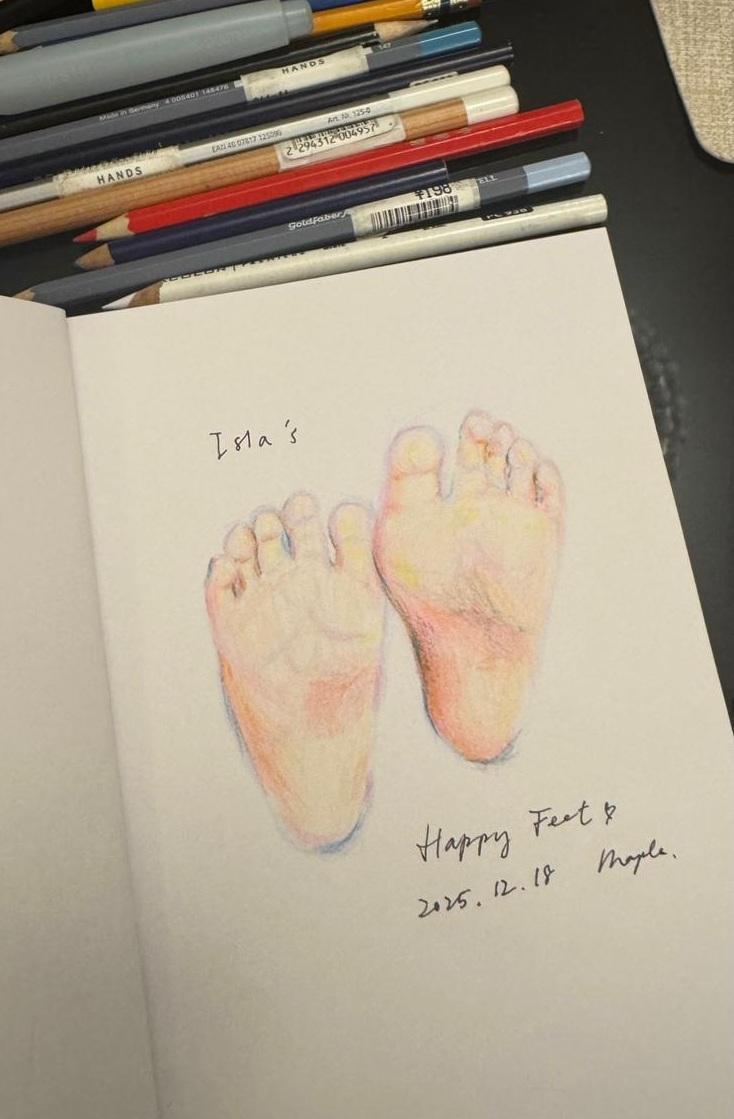 147
HANDS
Made in Germany 4 005401 148476
Art. Nr. 125-0
EAN 40 07817 125090
2 294312 004957
HANDS
¥198
Goldfaber
Isla's
Happy Feet
2025.12.18 Maple.